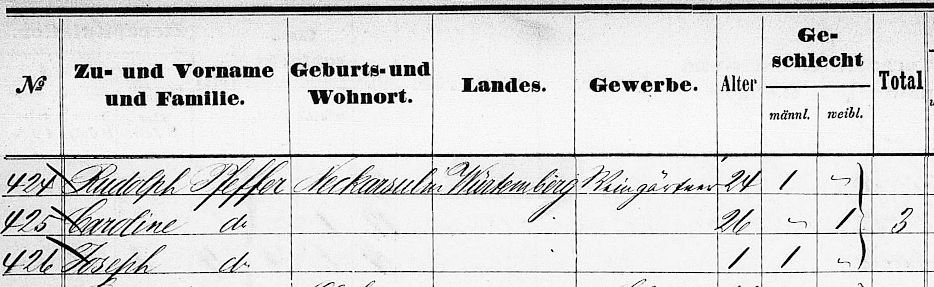 № Zu- und Vorname und Familie. Geburts- und Wohnort. Landes. Gewerbe. Alter Ge-schlecht männl. weibl. Total
424 Rudolph Pfeffer Neckarsulm Würtemberg Weingärtner 24 1 "
425 Caroline do 26 " 1 3
426 Joseph do 1 1 "